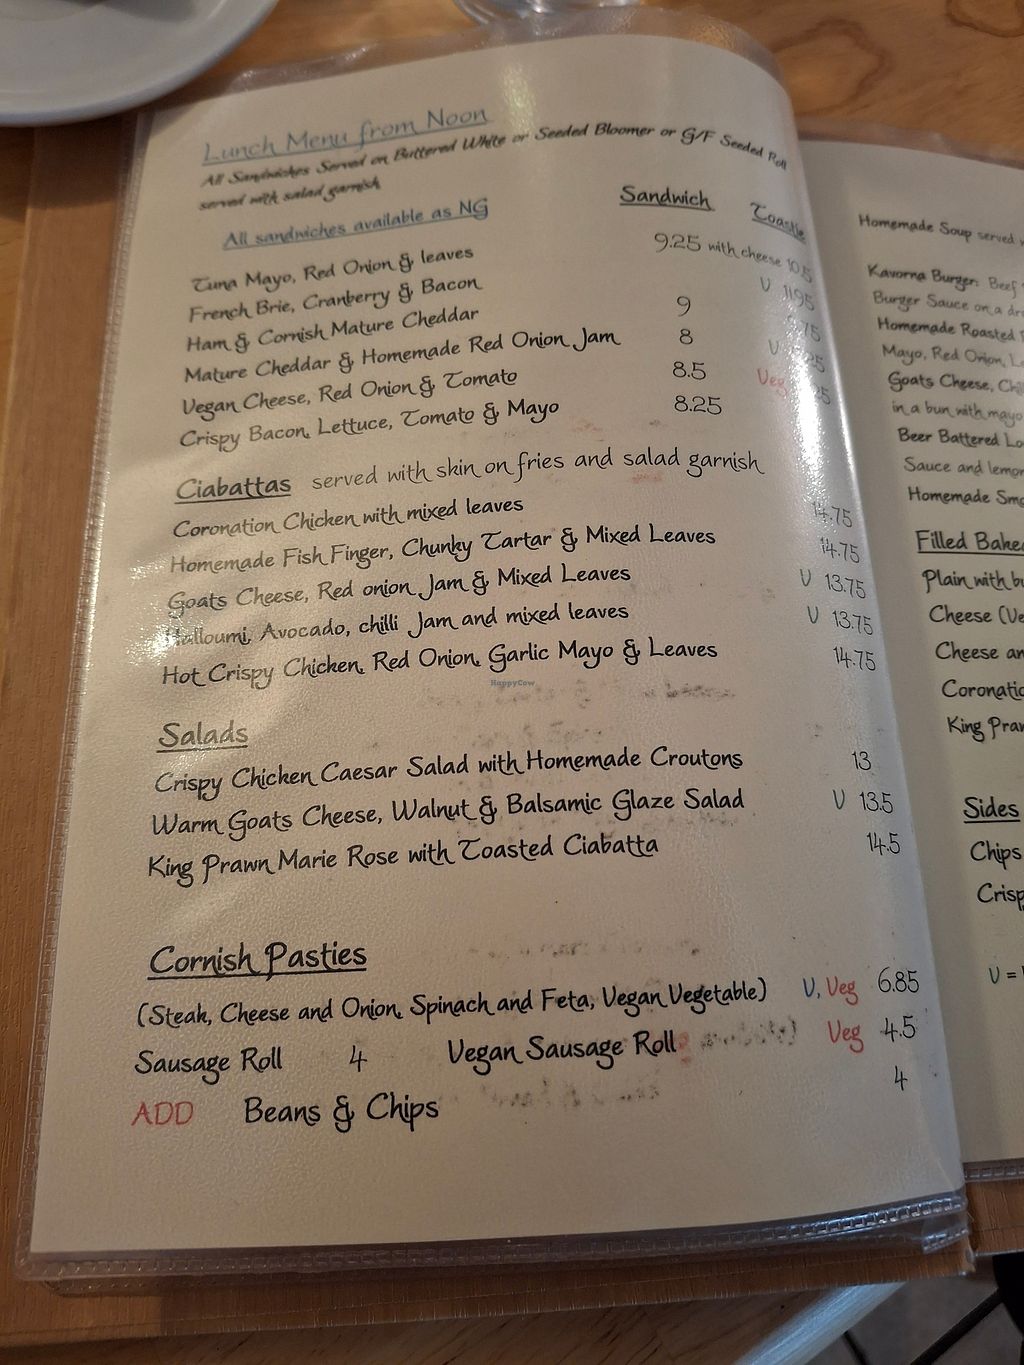 Lunch Menu from Noon
All Sandwiches Served on Buttered White or Seeded Bloomer or G/F Seeded Roll
served with salad garnish
Sandwich Toastie
All sandwiches available as NG
Tuna Mayo, Red Onion & leaves 9.25 with cheese
French Brie, Cranberry & Bacon
Ham & Cornish Mature Cheddar 9
Mature Cheddar & Homemade Red Onion Jam 8 V
Vegan Cheese, Red Onion & Tomato 8.5 Veg
Crispy Bacon, Lettuce, Tomato & Mayo 8.25
Ciabattas served with skin on fries and salad garnish
Coronation Chicken with mixed leaves 14.75
Homemade Fish Finger, Chunky Tartar & Mixed Leaves 14.75
Goats Cheese, Red onion Jam & Mixed Leaves V 13.75
Halloumi, Avocado, chilli Jam and mixed leaves V 13.75
Hot Crispy Chicken, Red Onion, Garlic Mayo & Leaves 14.75
HappyCow
Salads
Crispy Chicken Caesar Salad with Homemade Croutons 13
Warm Goats Cheese, Walnut & Balsamic Glaze Salad V 13.5
King Prawn Marie Rose with Toasted Ciabatta 14.5
Cornish Pasties
(Steak, Cheese and Onion, Spinach and Feta, Vegan Vegetable) V, Veg 6.85
Sausage Roll 4 Vegan Sausage Roll Veg 4.5
ADD Beans & Chips 4
Homemade Soup served
Kavorna Burger: Beef
Burger Sauce on a
Homemade Roasted
Mayo, Red Onion,
Goats Cheese,
in a bun with mayo
Beer Battered
Sauce and lemon
Homemade
Filled
Plain with
Cheese
Cheese
King
Sides
Chips
V =